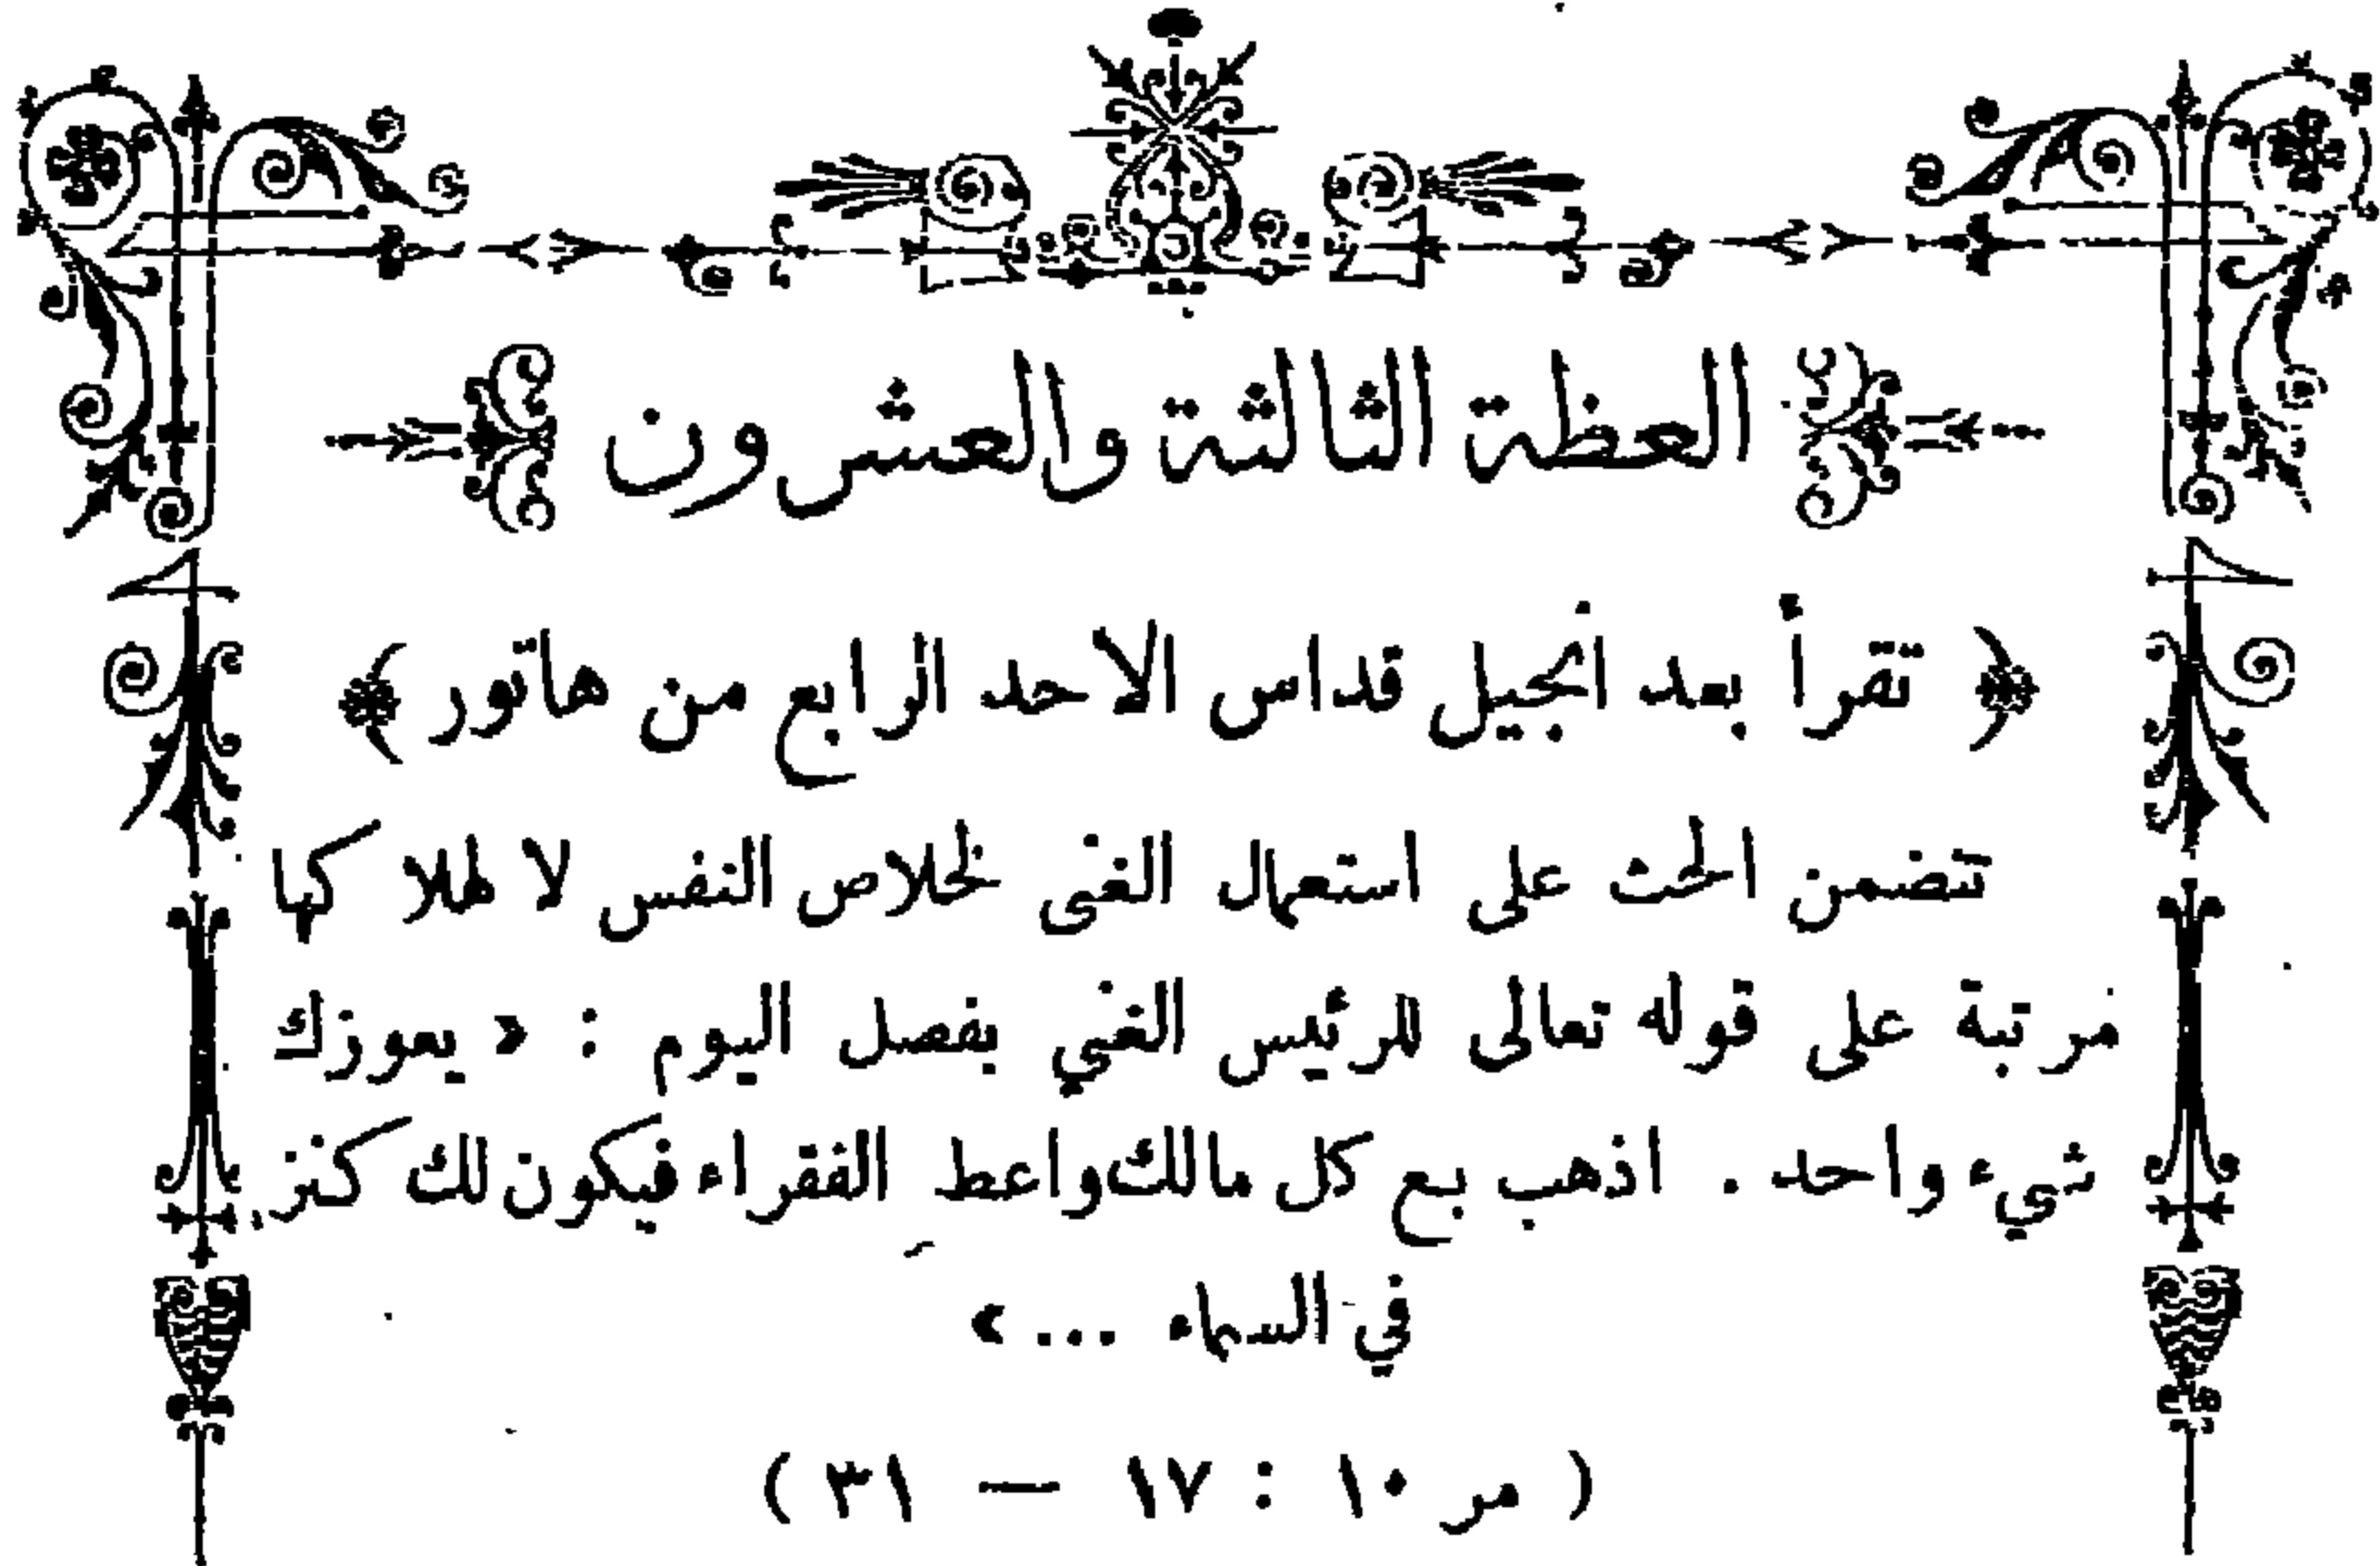 العظة الثالثة والعشرون
﴿ تقرأ بعد انجيل قداس الاحد الرابع من هاتور ﴾
تتضمن الحث على استعمال الغنى لخلاص النفس لا لهلاكها
مرتبة على قوله تعالى للرئيس الغني بفصل اليوم : « يعوزك
شيء واحد . اذهب بع كل مالك واعط الفقراء فيكون لك كنز
في السماء ... »
( مر ١٠ : ١٧ — ٣١ )